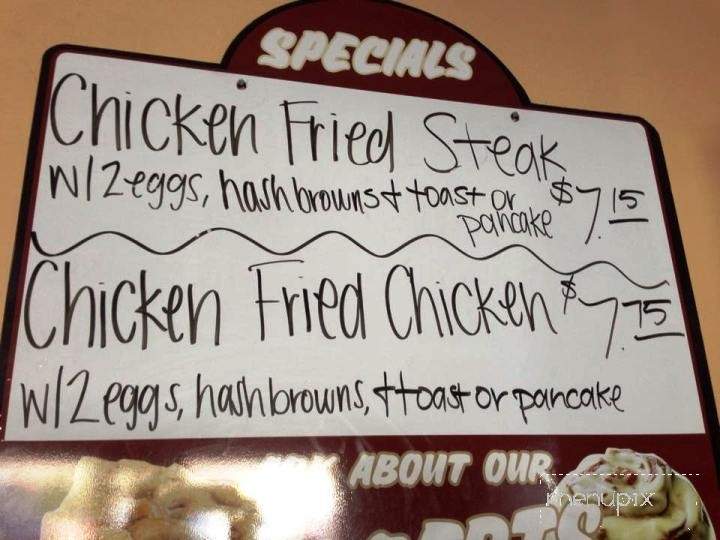 SPECIALS
Chicken Fried Steak
w/2 eggs, hashbrowns + toast or
pancake $7.15
Chicken Fried Chicken $7.75
w/2 eggs, hashbrowns, + toast or pancake
ABOUT OUR
menupix